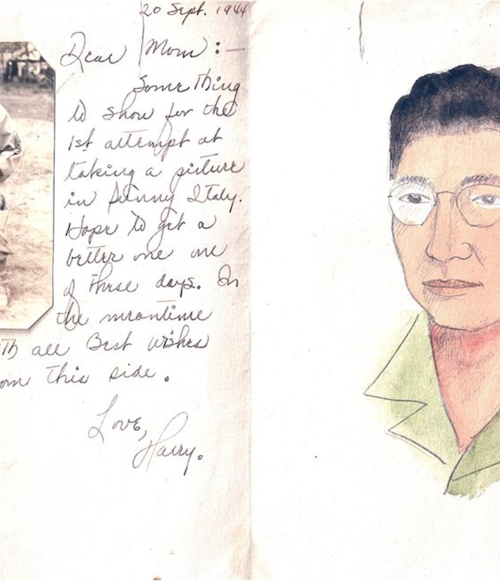 20 Sept. 1944
Dear Mom:—
Something
to show for the
1st attempt at
taking a picture
in Sunny Italy.
Hope to get a
better one one
of these days. In
the meantime
th all Best Wishes
om this side.
Love,
Harry.